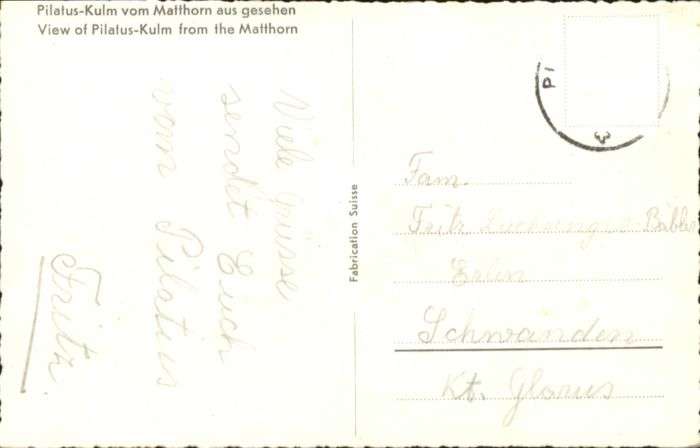 Pilatus-Kulm vom Matthorn aus gesehen
View of Pilatus-Kulm from the Matthorn
Viele Grüsse
sendet Euch
vom Pilatus
Fritz.
Fabrication Suisse
PI
Fam.
Fritz
Erlen
Schwanden
Kt. Glarus